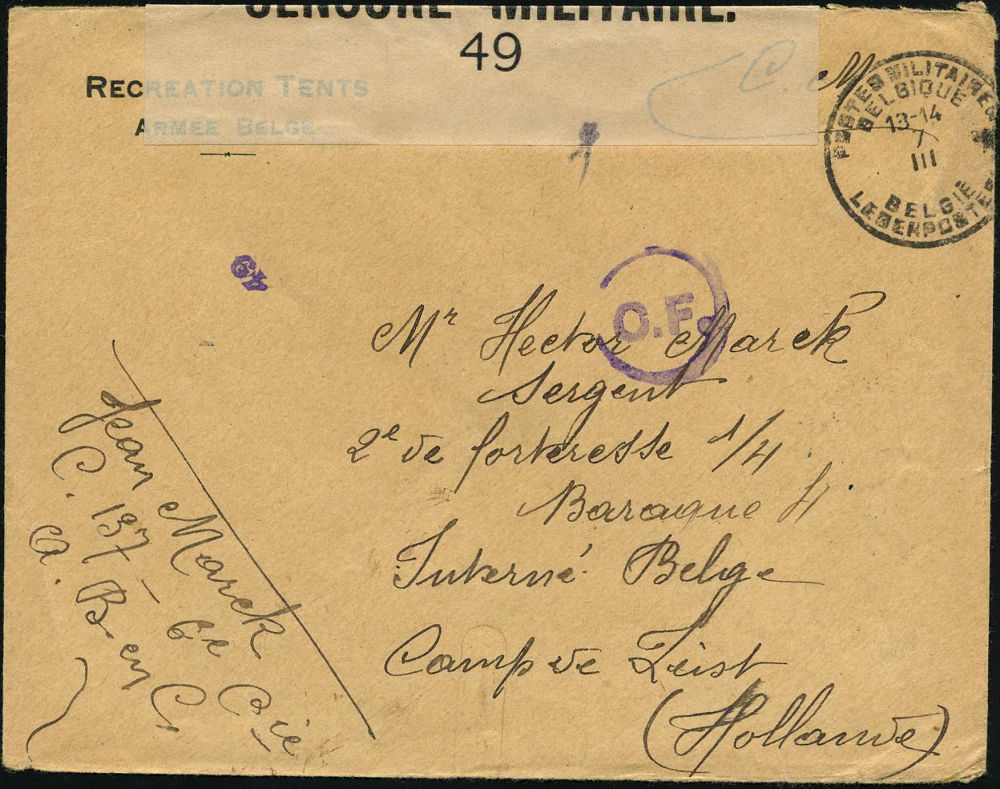 CENSURE MILITAIRE.
49
RECREATION TENTS
ARMÉE BELGE
C. M
POSTES MILITAIRES
BELGIQUE
13-14
7
III
BELGIË
LEGERPOSTEN
49
C.F.
Mr Hector Marck
Sergent
2e de forteresse 1/4
Baraque H
Interné Belge
Camp de Zeist
(Hollande)
Jean Marck
C. 137 - 6e Cie
A. B. en C.